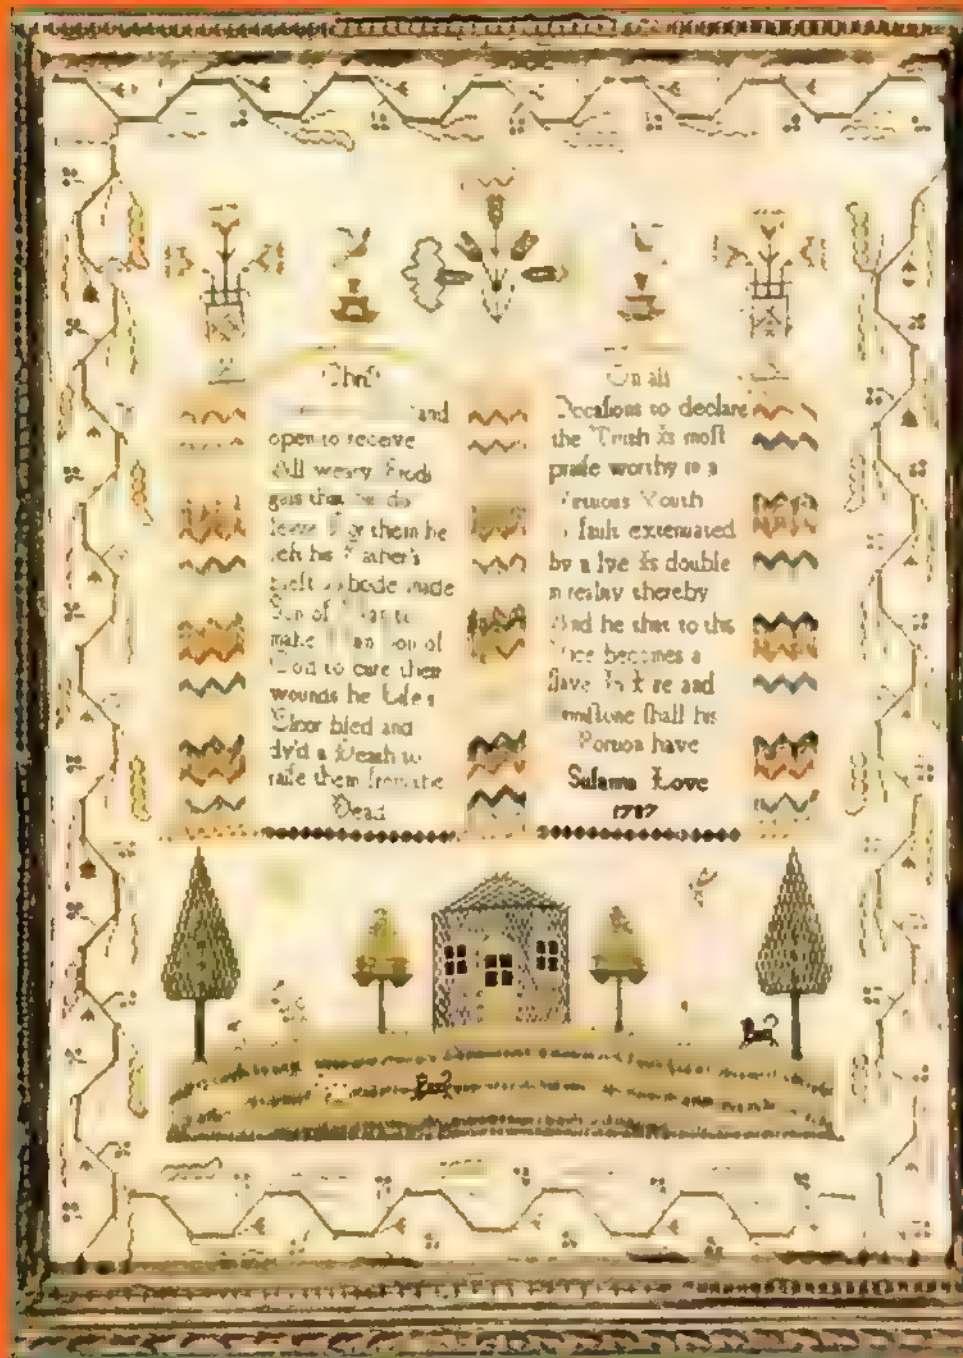 Christ
and
open to receive
All weary Prodi
gals that
them he
left his Father's
made
Son of Man to
make Man Son of
God to cure their
wounds he Life's
Elixir bled and
dy'd a Death to
raise them from the
Dead
On all
Occasions to declare
the Truth Is most
praise worthy in a
Virtuous Youth
fault extenuated
by a lye Is double
in reality thereby
And he that to this
Vice becomes a
slave In Fire and
Brimstone shall his
Portion have
Love
1787